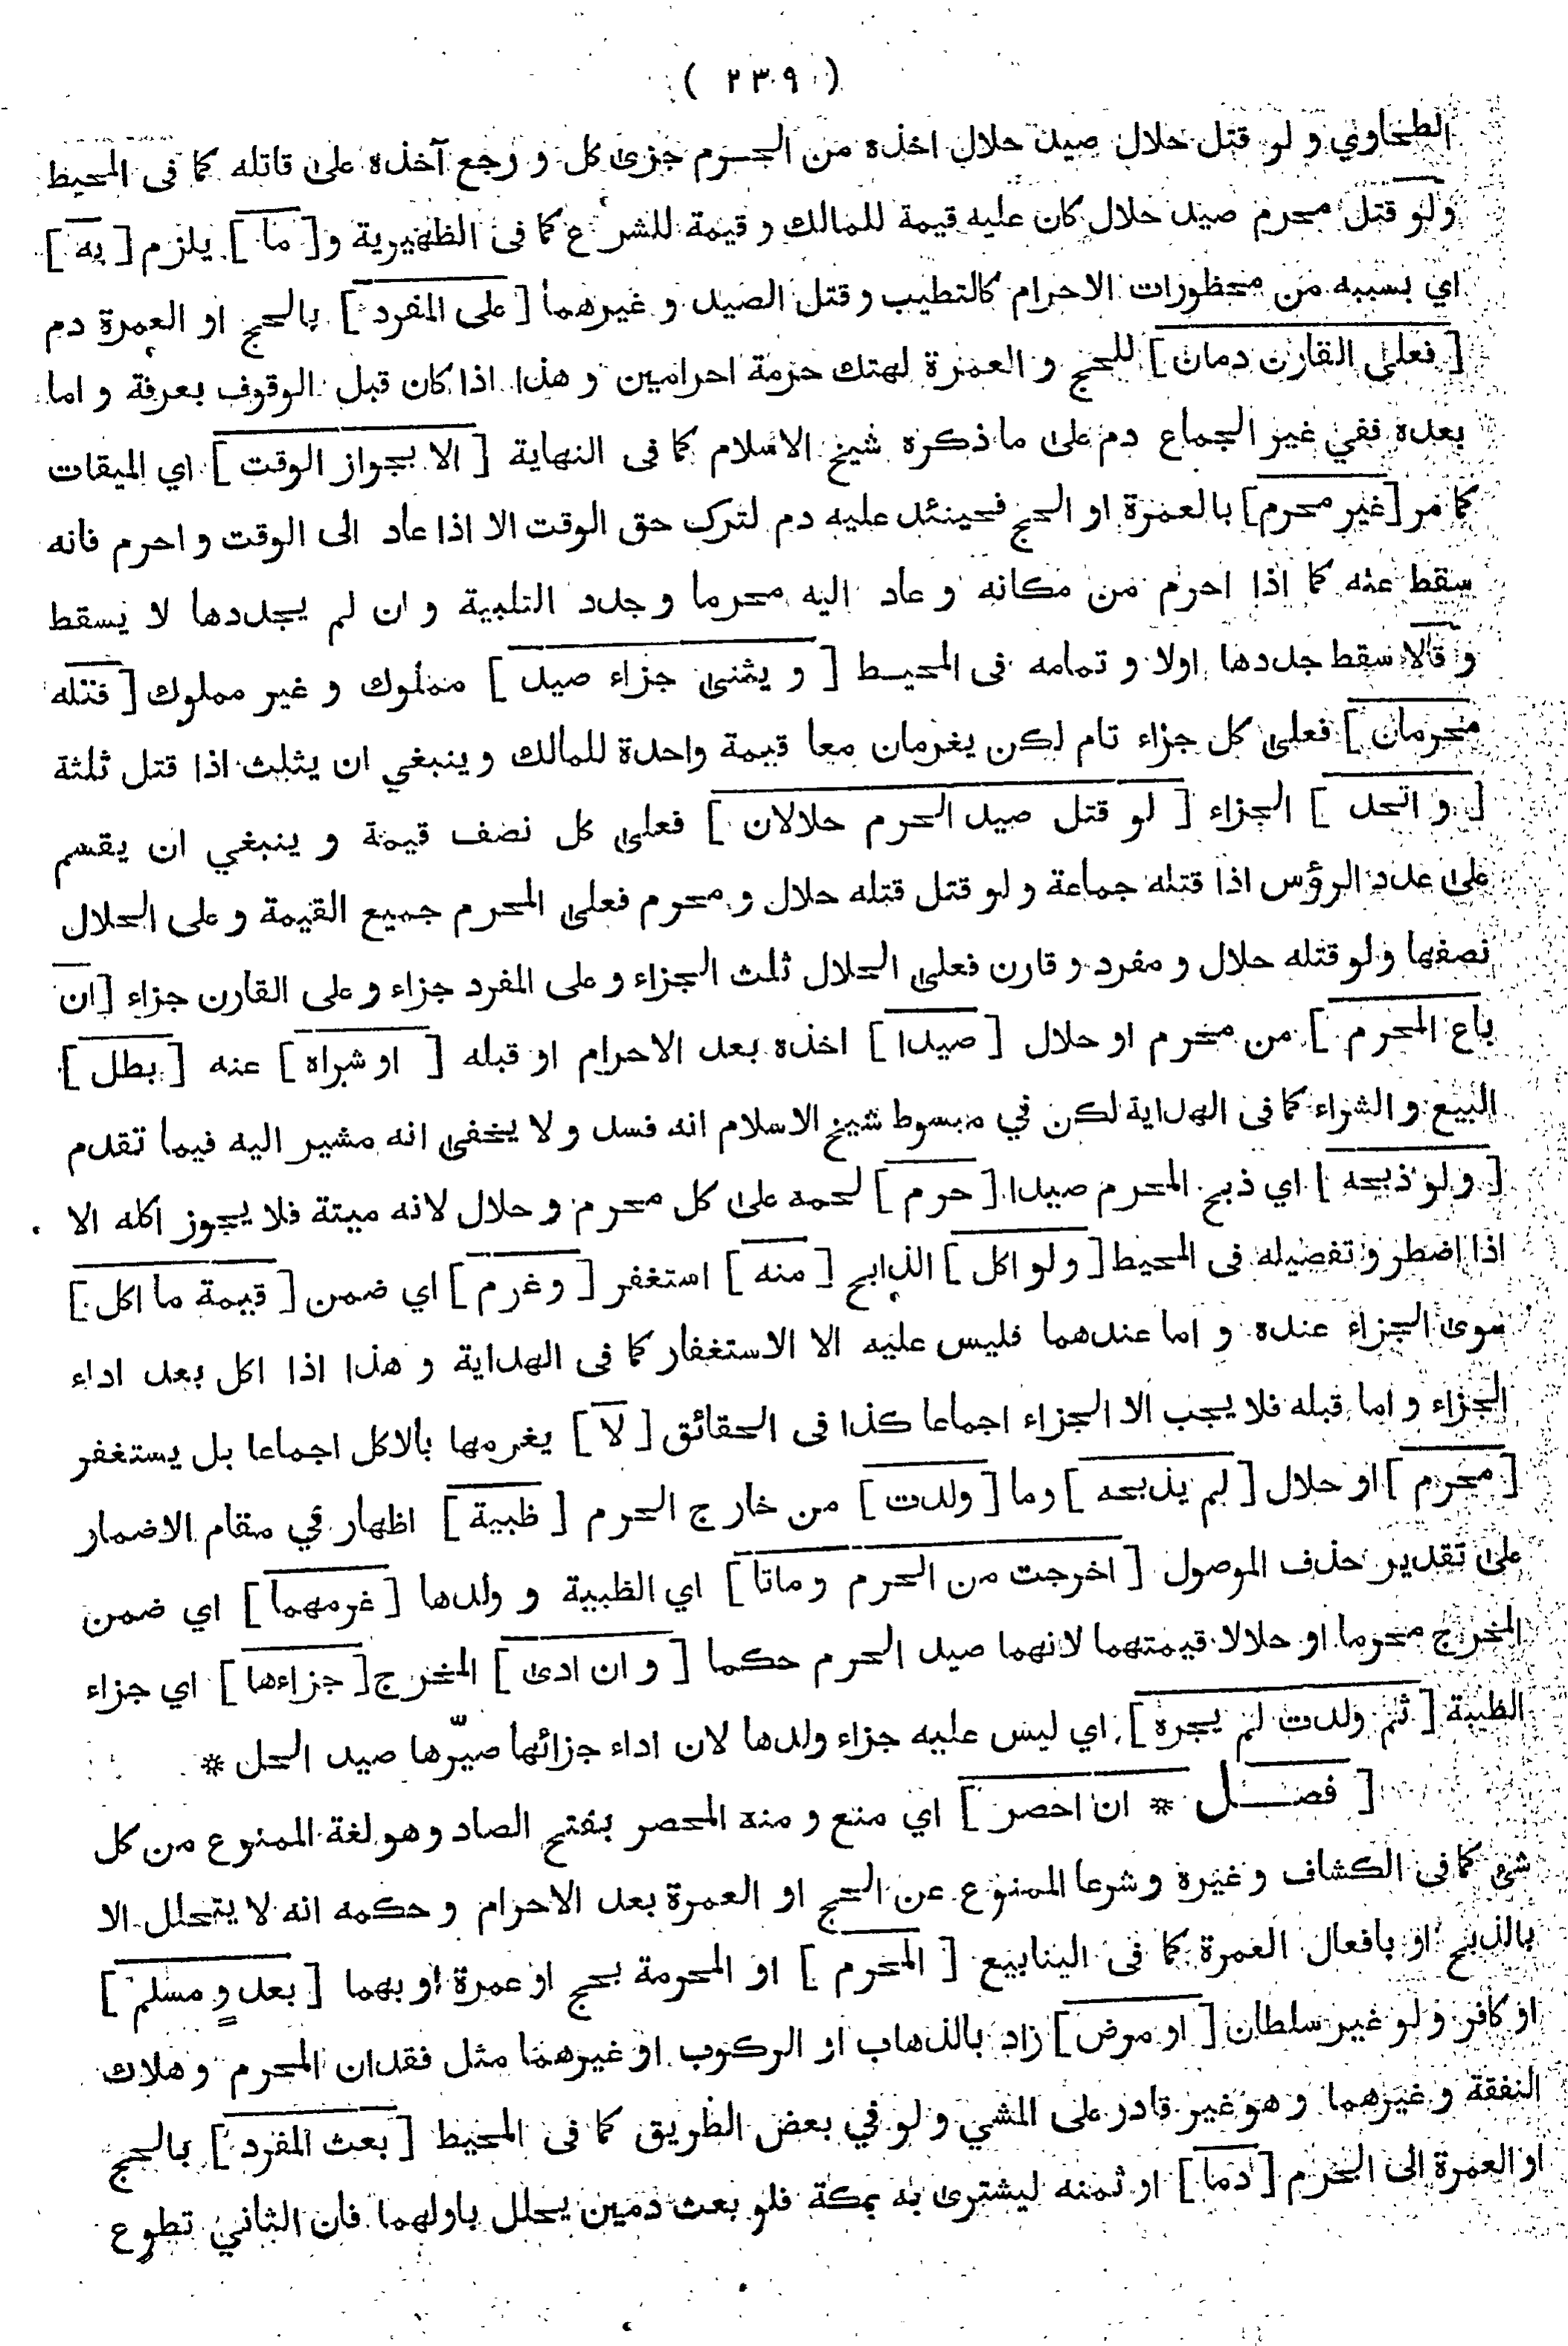 ( ٢٣٩ )
الطحاوي و لو قتل حلال صيد حلال اخذه من الحرم جزى كل و رجع آخذه على قاتله كما فى المحيط
ولو قتل محرم صيد حلال كان عليه قيمة للمالك و قيمة للشرع كما فى الظهيرية و[ ما ] يلزم [ به ]
اي بسببه من محظورات الاحرام كالتطيب و قتل الصيد و غيرهما [ على المفرد ] بالحج او العمرة دم
[ فعلى القارن دمان ] للحج و العمرة لهتك حرمة احرامين و هذا اذا كان قبل الوقوف بعرفة و اما
بعده ففي غير الجماع دم على ما ذكره شيخ الاسلام كما فى النهاية [ الا بجواز الوقت ] اي الميقات
كما مر [غير محرم] بالعمرة او الحج فحينئد عليه دم لترك حق الوقت الا اذا عاد الى الوقت و احرم فانه
سقط عنه كما اذا احرم من مكانه و عاد اليه محرما و جدد التلبية و ان لم يجددها لا يسقط
و قالا سقط جددها اولا و تمامه فى المحيط [ و يثنى جزاء صيد ] مملوك و غير مملوك [ قتله
محرمان ] فعلى كل جزاء تام لكن يغرمان معا قيمة واحدة للمالك و ينبغي ان يثلث اذا قتل ثلثة
[ و اتحد ] الجزاء [ لو قتل صيد الحرم حلالان ] فعلى كل نصف قيمة و ينبغي ان يقسم
على عدد الرؤس اذا قتله جماعة و لو قتل قتله حلال و محرم فعلى المحرم جميع القيمة و على الحلال
نصفها ولو قتله حلال و مفرد و قارن فعلى الحلال ثلث الجزاء و على المفرد جزاء و على القارن جزاء [ ان
باع المحرم ] من محرم او حلال [ صيدا ] اخذه بعد الاحرام او قبله [ او شراه ] عنه [ بطل ]
البيع و الشراء كما فى الهداية لكن في مبسوط شيخ الاسلام انه فسد و لا يخفى انه مشير اليه فيما تقدم
[ ولو ذبحه ] اي ذبح المحرم صيدا [ حرم ] لحمه على كل محرم و حلال لانه ميتة فلا يجوز اكله الا
اذا اضطر و تفصيله فى المحيط [ ولو اكل ] الذابح [ منه ] استغفر [ وغرم ] اي ضمن [ قيمة ما اكل ]
سوى الجزاء عنده و اما عندهما فليس عليه الا الاستغفار كما فى الهداية و هذا اذا اكل بعد اداء
الجزاء و اما قبله فلا يجب الا الجزاء اجماعا كذا فى الحقائق [ لا ] يغرمها بالاكل اجماعا بل يستغفر
[ محرم ] او حلال [ لم يذبحه ] وما [ ولدت ] من خارج الحرم [ ظبية ] اظهار في مقام الاضمار
على تقدير حذف الموصول [ اخرجت من الحرم و ماتا ] اي الظبية و ولدها [ غرمهما ] اي ضمن
المخرج محرما او حلالا قيمتهما لانهما صيد الحرم حكما [ و ان ادى ] المخرج [ جزاءها ] اي جزاء
الظبية [ ثم ولدت لم يجره ] اي ليس عليه جزاء ولدها لان اداء جزائها صيّرها صيد الحل *
[ فصـــل * ان احصر ] اي منع و منه المحصر بفتح الصاد و هو لغة الممنوع من كل
شئ كما فى الكشاف و غيره و شرعا الممنوع عن الحج او العمرة بعد الاحرام و حكمه انه لا يتحلل الا
بالذبح او بافعال العمرة كما فى الينابيع [ المحرم ] او المحرمة بحج او عمرة او بهما [ بعدو مسلم ]
او كافر و لو غير سلطان [ او مرض ] زاد بالذهاب او الركوب او غيرهما مثل فقدان المحرم و هلاك
النفقة و غيرهما و هو غير قادر على المشي و لو في بعض الطريق كما فى المحيط [ بعث المفرد ] بالحج
او العمرة الى الحرم [ دما ] او ثمنه ليشترى به بمكة فلو بعث دمين يحلل باولهما فان الثاني تطوع